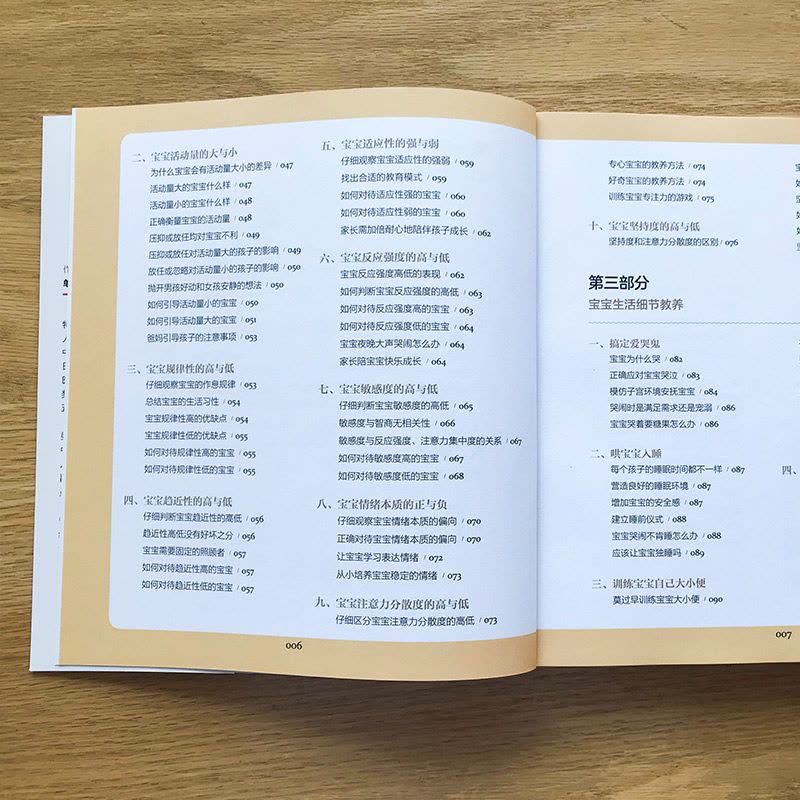 二、宝宝活动量的大与小
为什么宝宝会有活动量大小的差异 / 047
活动量大的宝宝什么样 / 047
活动量小的宝宝什么样 / 048
正确衡量宝宝的活动量 / 048
压抑或放任均对宝宝不利 / 049
压抑或放任对活动量大的孩子的影响 / 049
放任或忽略对活动量小的孩子的影响 / 050
抛开男孩好动和女孩安静的想法 / 050
如何引导活动量小的宝宝 / 050
如何引导活动量大的宝宝 / 051
爸妈引导孩子的注意事项 / 053
三、宝宝规律性的高与低
仔细观察宝宝的作息规律 / 053
总结宝宝的生活习性 / 054
宝宝规律性高的优缺点 / 054
宝宝规律性低的优缺点 / 055
如何对待规律性高的宝宝 / 055
如何对待规律性低的宝宝 / 055
四、宝宝趋近性的高与低
仔细判断宝宝趋近性的高低 / 056
趋近性高低没有好坏之分 / 056
宝宝需要固定的照顾者 / 057
如何对待趋近性高的宝宝 / 057
如何对待趋近性低的宝宝 / 057
五、宝宝适应性的强与弱
仔细观察宝宝适应性的强弱 / 059
找出合适的教育模式 / 059
如何对待适应性强的宝宝 / 060
如何对待适应性弱的宝宝 / 060
家长需加倍耐心地陪伴孩子成长 / 062
六、宝宝反应强度的高与低
宝宝反应强度高低的表现 / 062
如何判断宝宝反应强度的高低 / 063
如何对待反应强度高的宝宝 / 063
如何对待反应强度低的宝宝 / 064
宝宝夜晚大声哭闹怎么办 / 064
家长陪宝宝快乐成长 / 064
七、宝宝敏感度的高与低
仔细判断宝宝敏感度的高低 / 065
敏感度与智商无相关性 / 066
敏感度与反应强度、注意力集中度的关系 / 067
如何对待敏感度高的宝宝 / 067
如何对待敏感度低的宝宝 / 068
八、宝宝情绪本质的正与负
仔细观察宝宝情绪本质的偏向 / 070
正确对待宝宝情绪本质的偏向 / 070
让宝宝学习表达情绪 / 072
从小培养宝宝稳定的情绪 / 073
九、宝宝注意力分散度的高与低
仔细区分宝宝注意力分散度的高低 / 073
006
专心宝宝的教养方法 / 074
好奇宝宝的教养方法 / 074
训练宝宝专注力的游戏 / 075
十、宝宝坚持度的高与低
坚持度和注意力分散度的区别 / 076
第三部分
宝宝生活细节教养
一、搞定爱哭鬼
宝宝为什么哭 / 082
正确应对宝宝哭泣 / 083
模仿子宫环境安抚宝宝 / 084
哭闹时是满足需求还是宠溺 / 086
宝宝哭着要糖果怎么办 / 086
二、哄宝宝入睡
每个孩子的睡眠时间都不一样 / 087
营造良好的睡眠环境 / 087
增加宝宝的安全感 / 087
建立睡前仪式 / 088
宝宝哭闹不肯睡怎么办 / 088
应该让宝宝独睡吗 / 089
三、训练宝宝自己大小便
莫过早训练宝宝大小便 / 090
四、
007